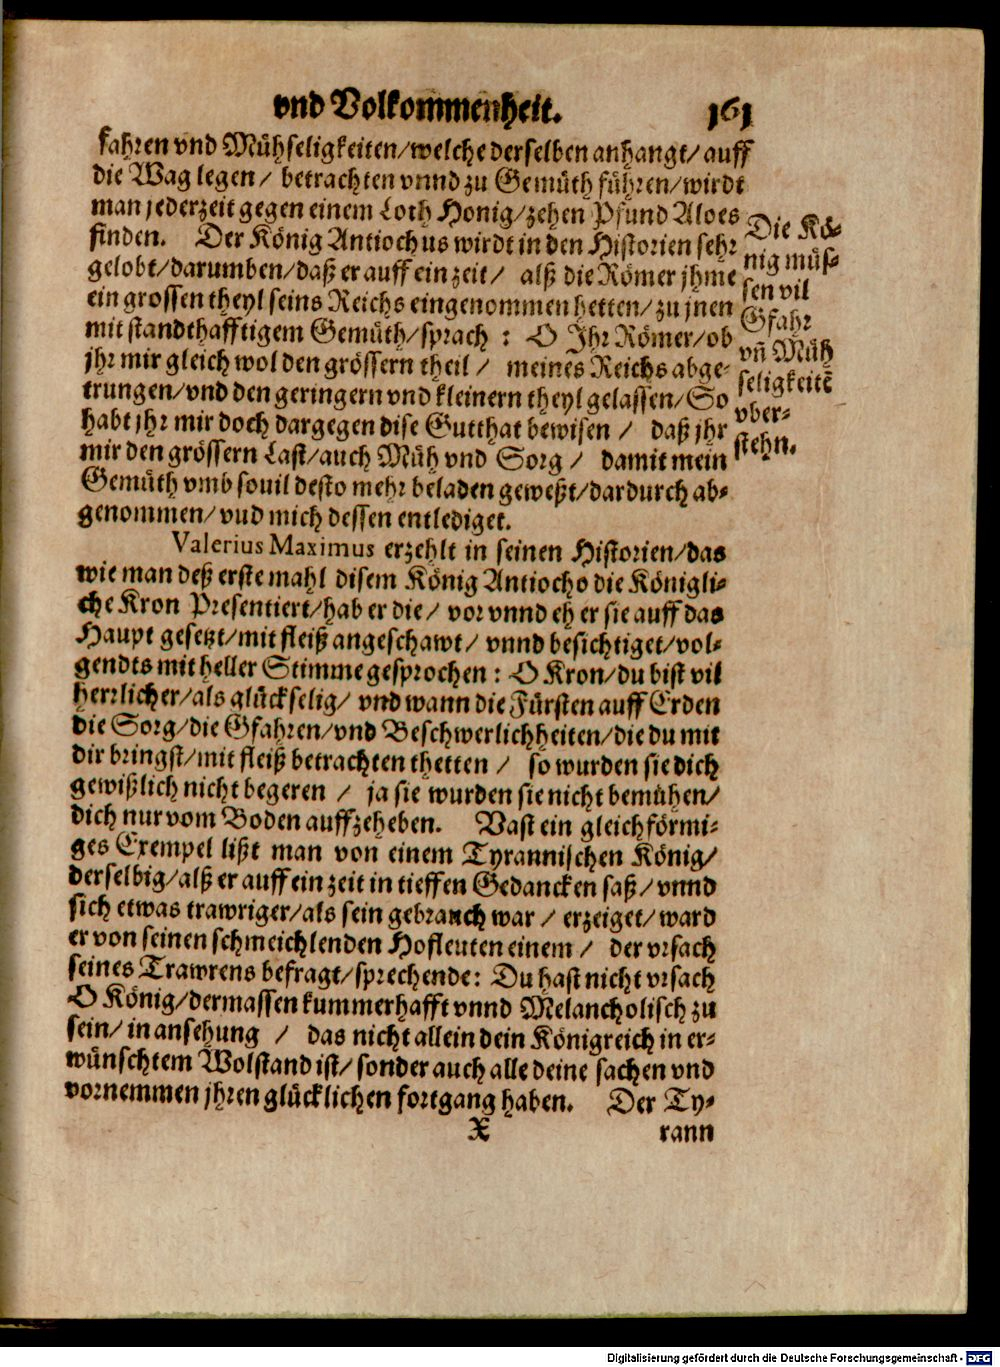 vnd Volkommenheit. 161
fahren vnd Mühseligkeiten/welche derselben anhangt/auff
die Wag legen/ betrachten vnnd zu Gemüth führen/wirdt
man jederzeit gegen einem Loth Honig/zehen Pfund Aloes
finden. Der König Antiochus wirdt in den Historien sehr
gelobt/darumben/daß er auff ein zeit/ alß die Römer jhme
ein grossen theyl seins Reichs eingenommen hetten/zu jnen
mit standthafftigem Gemüth/sprach : O Jhr Römer/ob
jhr mir gleich wol den grössern theil/ meines Reichs abge-
trungen/vnd den geringern vnd kleinern theyl gelassen/So
habt jhr mir doch dargegen dise Gutthat bewisen/ daß jhr
mir den grössern Last/auch Müh vnd Sorg/ damit mein
Gemüth vmb souil desto mehr beladen geweßt/dardurch ab-
genommen/vud mich dessen entlediget.
Die Kö-
nig müs-
sen vil
Gfahr
vn̄ Müh
seligkeitē
vber-
stehn.
Valerius Maximus erzehlt in seinen Historien/das
wie man deß erste mahl disem König Antiocho die Königli-
che Kron Presentiert/hab er die/ vor vnnd eh er sie auff das
Haupt gesetzt/mit fleiß angeschawt/ vnnd besichtiget/vol-
gendts mit heller Stimme gesprochen : O Kron/du bist vil
herrlicher/als glückselig/ vnd wann die Fürsten auff Erden
die Sorg/die Gfahren/vnd Beschwerlichheiten/die du mit
dir bringst/mit fleiß betrachten thetten/ so wurden sie dich
gewißlich nicht begeren/ ja sie wurden sie nicht bemühen/
dich nur vom Boden auffzeheben. Vast ein gleichförmi-
ges Exempel lißt man von einem Tyrannischen König/
derselbig/alß er auff ein zeit in tieffen Gedancken saß/vnnd
sich etwas trawriger/als sein gebrauch war/ erzeiget/ward
er von seinen schmeichlenden Hofleuten einem/ der vrsach
seines Trawrens befragt/sprechende: Du hast nicht vrsach
O König/dermassen kummerhafft vnnd Melancholisch zu
sein/in ansehung/ das nicht allein dein Königreich in er-
wünschtem Wolstand ist/sonder auch alle deine sachen vnd
vornemmen jhren glücklichen fortgang haben. Der Ty-
X rann
Digitalisierung gefördert durch die Deutsche Forschungsgemeinschaft - DFG